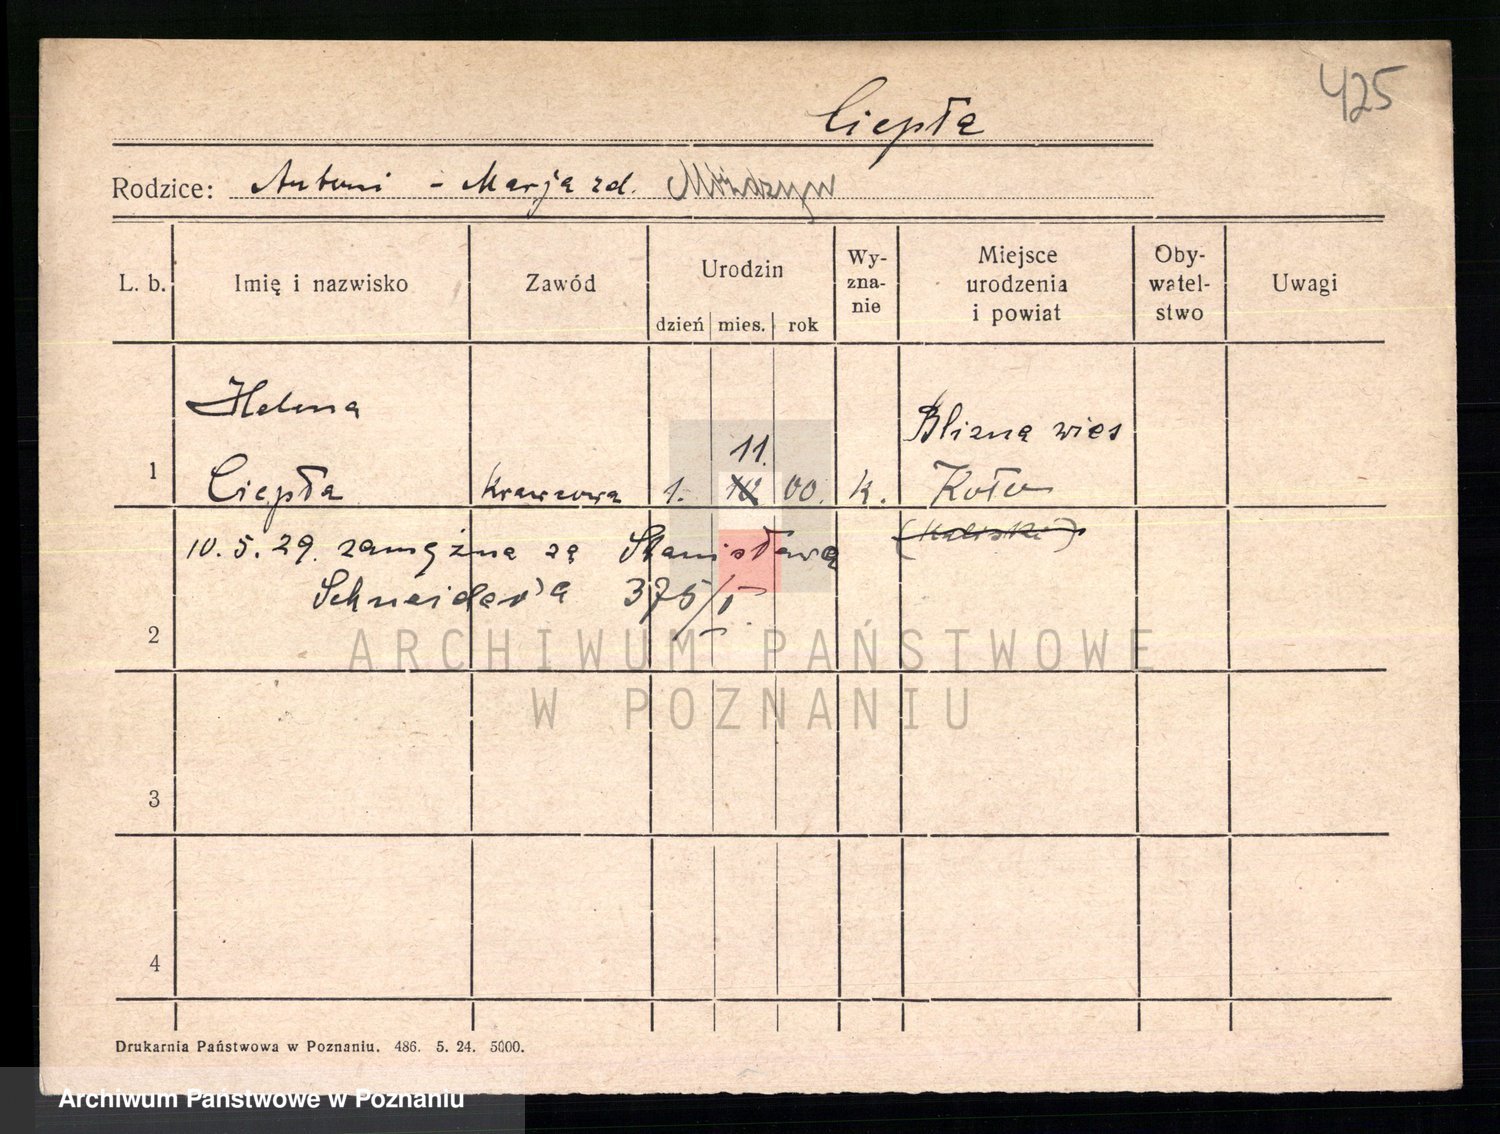 425
Ciepła
Rodzice: Antoni - Marja zd.
L. b. Imię i nazwisko Zawód Urodzin dzień mies. rok Wy-zna-nie Miejsce urodzenia i powiat Oby-watel-stwo Uwagi
Helena
11. Blizna wieś
1 Ciepła krawcowa 1. 00. k. Koło
10. 5. 29. zamężna za Stanisława
Schneider'a 375/I
2
3
4
Drukarnia Państwowa w Poznaniu. 486. 5. 24. 5000.
ARCHIWUM PAŃSTWOWE
W POZNANIU
Archiwum Państwowe w Poznaniu